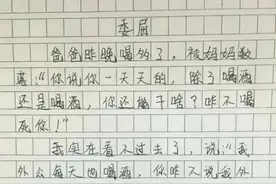 委屈
爸爸昨晚喝多了，被妈妈数
落：“你说你一天天的，除了喝酒
还是喝酒，你还能干啥？咋不喝
死你！”
我实在看不过去了，说：“我
外公每天也喝酒，你咋不说我外